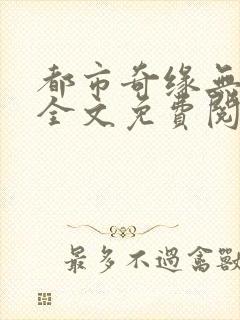 都市奇缘無
全文免費閱
最多不過禽獸